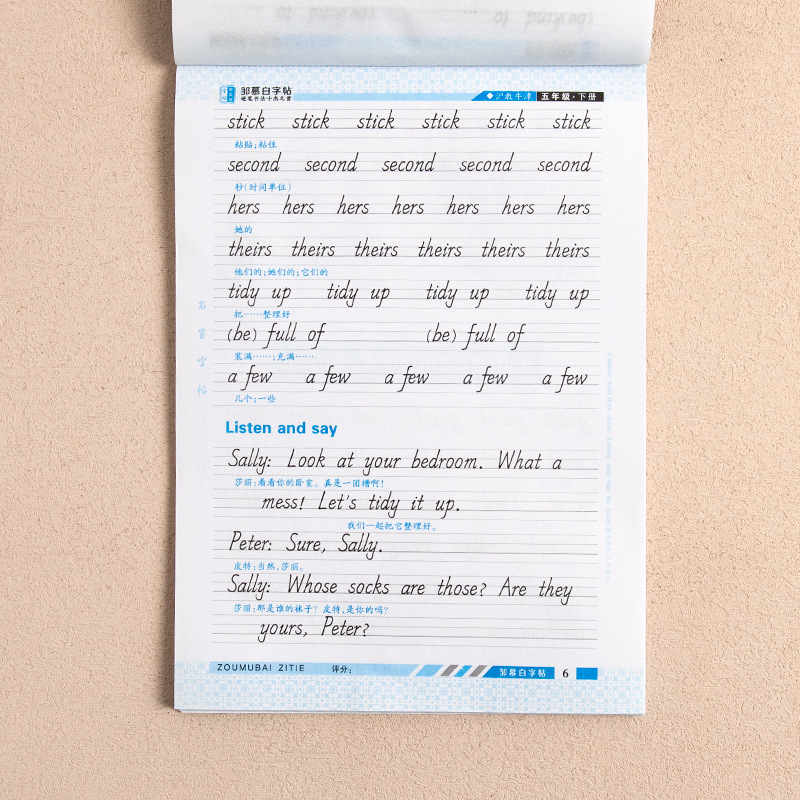 邹慕白字帖
硬笔书法十杰之首
沪教牛津 五年级·下册
stick stick stick stick stick stick
粘贴;粘住
second second second second second
秒(时间单位)
hers hers hers hers hers hers hers
她的
theirs theirs theirs theirs theirs theirs
他们的;她们的;它们的
tidy up tidy up tidy up tidy up
把……整理好
(be) full of (be) full of
装满……;充满……
a few a few a few a few a few
几个;一些
Listen and say
Sally: Look at your bedroom. What a
莎丽:看看你的卧室。真是一团糟啊!
mess! Let's tidy it up.
我们一起把它整理好。
Peter: Sure, Sally.
皮特:当然,莎丽。
Sally: Whose socks are those? Are they
莎丽:那是谁的袜子?皮特,是你的吗?
yours, Peter?
名家字帖
ZOUMUBAI ZITIE 评分:
邹慕白字帖 6